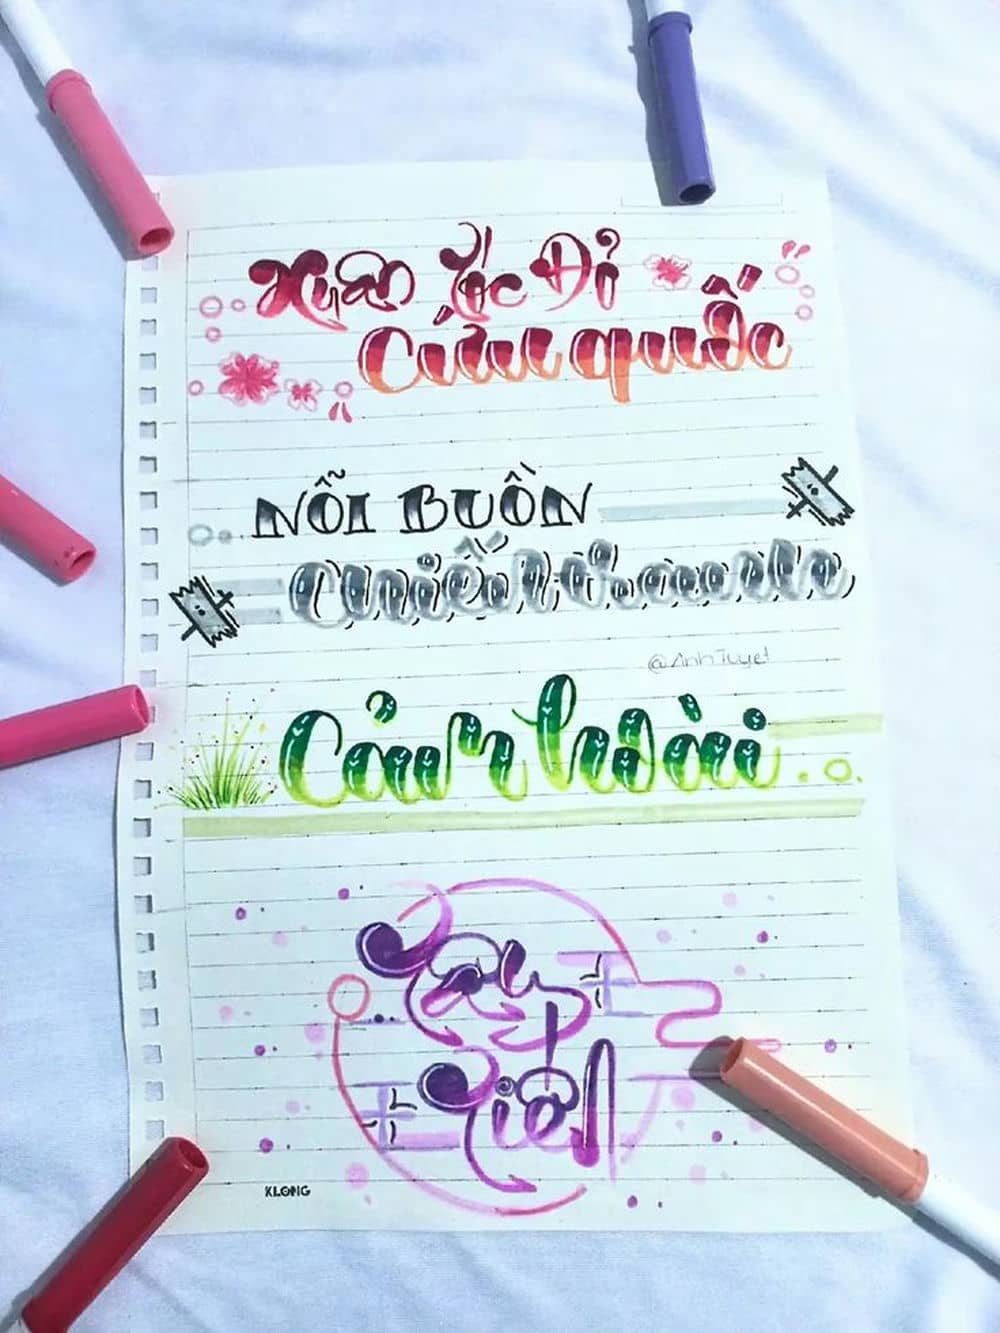 Xuân Tóc Đỏ
Cứu quốc
NỖI BUỒN
Chiến tranh
@AnhTuyet
Cảm hoài
Tây
Tiến
KLONG